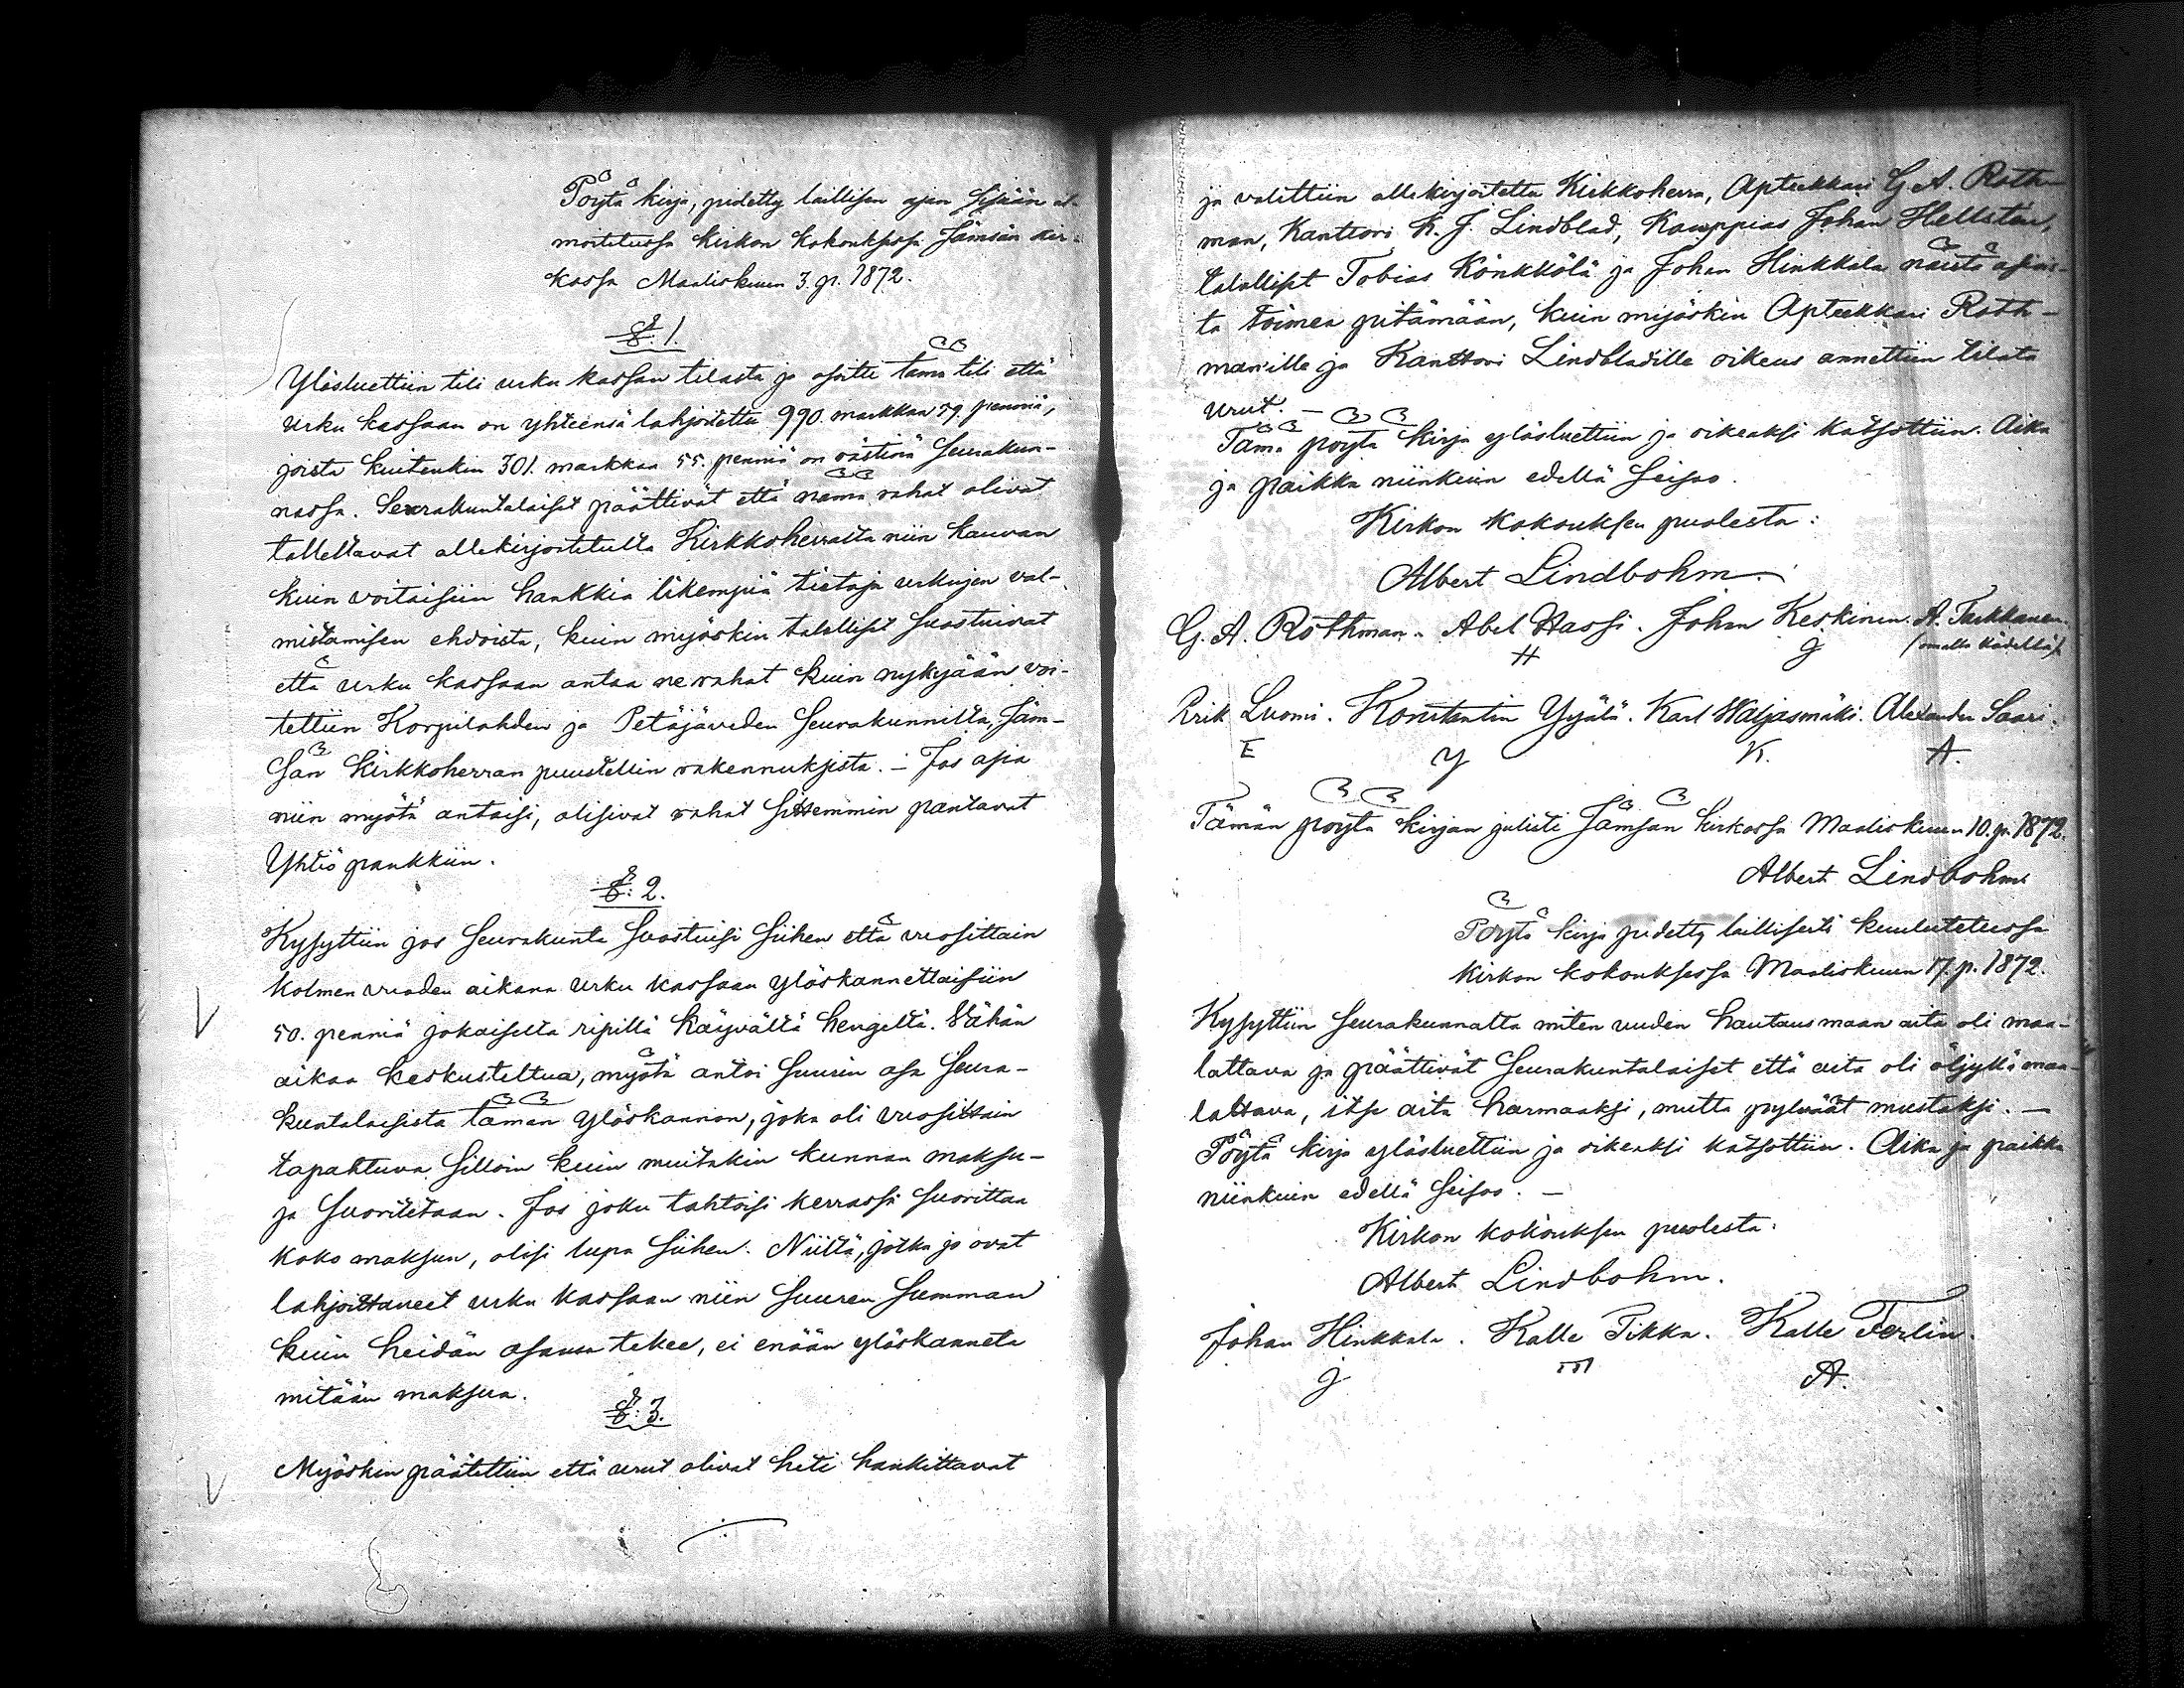 Pöytä kirja, pidetty laillisen ajan sisään il-
moitetussa Kirkon Kokouksessa Jämsän kir-
kossa Maaliskuun 3. p. 1872.
§. 1.
Ylösluettiin tili urku kassan tilasta ja osoitti tämä tili että
urku kassaan on yhteensä lahjoitettu 990. markkaa 59. penniä,
joista kuitenkin 301. markkaa 55. penniä on rästinä Seurakun-
nassa. Seurakuntalaiset päättivät että nämä rahat olivat
talletettavat allekirjoitetulta Kirkkoherralta niin kauvan
kuin voitaisiin hankkia likempiä tietoja urkujen val-
mistamisen ehdoista, kuin myöskin talolliset suostuivat
että urku kassaan antaa ne rahat kuin nykyjään voi-
tettiin Korpilahden ja Petäjäveden Seurakunnilta, Jäm-
sän Kirkkoherran puustellin rakennuksista. – Jos asia
niin myötä antaisi, olisivat rahat sittemmin pantavat
Yhtiö pankkiin.
§. 2.
Kysyttiin jos Seurakunta suostuisi siihen että vuosittain
kolmen vuoden aikana urku kassaan ylöskannettaisiin
50. penniä jokaiselta ripillä käyvältä hengeltä. Vähän
aikaa keskusteltua, myötä antoi suurin osa Seura-
kuntalaisista tämän ylöskannon, joka oli vuosittain
tapahtuva silloin kuin muitakin kunnan maksu-
ja suoritetaan. Jos joku tahtoisi kerrassa suorittaa
koko maksun, olisi lupa siihen. Niiltä, jotka jo ovat
lahjoittaneet urku kassaan niin suuren summan
kuin heidän osansa tekee, ei enään ylöskanneta
mitään maksua.
§. 3.
Myöskin päätettiin että urut olivat heti hankittavat
ja valittiin allekirjoitettu Kirkkoherra, Apteekkari G. A. Roth-
man, Kanttori K. J. Lindblad, Kauppias Johan Hellsten,
talolliset Tobias Könkkölä ja Johan Hinkkala näistä asiois-
ta toimea pitämään, kuin myöskin Apteekkari Roth-
man'ille ja Kanttori Lindblad'ille oikeus annettiin tilata
urut. –
Tämä pöytä kirja ylösluettiin ja oikeaksi katsottiin. Aika
ja paikka niinkuin edellä seisoo.
Kirkon kokouksen puolesta:
Albert Lindbohm.
G. A. Rothman. Abel Hassi. Johan Keskinen. A. Tarkkanen.
H J (omalla kädellä)
Erik Luomi. Konstantin Yijälä. Karl Waljasmäki. Alexander Saari.
E Y K. A.
Tämän pöytä kirjan julisti Jämsän kirkossa Maaliskuun 10. p. 1872.
Albert Lindbohm
Pöytä kirja pidetty laillisesti kuulutetussa
kirkon kokouksessa Maaliskuun 17. p. 1872.
Kysyttiin Seurakunnalta miten uuden hautausmaan aita oli maa-
lattava ja päättivät Seurakuntalaiset että aita oli öljyllä maa-
lattava, itse aita harmaaksi, mutta pylväät mustaksi. –
Pöytä kirja ylösluettiin ja oikeaksi katsottiin. Aika ja paikka
niinkuin edellä seisoo. –
Kirkon kokouksen puolesta:
Albert Lindbohm.
Johan Hinkkala. Kalle Tikka. Kalle Ferlin.
J A.